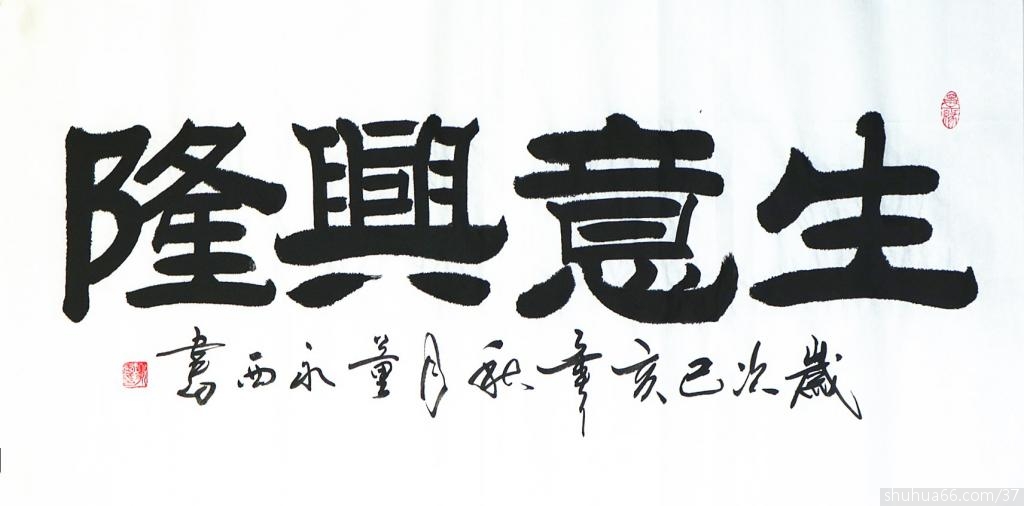 生意興隆
歲次己亥年秋月董永西書
shuhua66.com/37